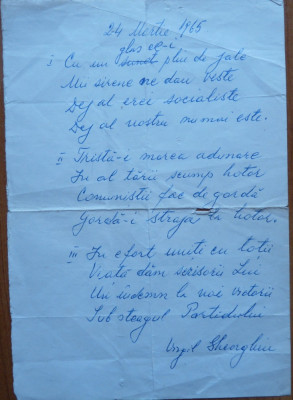 24 Martie 1965
glas ce-i
I Cu un sunet plin de jale
Mii sirene ne dau veste
Dej al erei socialiste
Dej al nostru nu mai este.
II Tristă-i marea adunare
În al țării scump hotar
Comuniștii fac de gardă
Gardă-i strajă la hotar.
III În efort unite cu toții
Viață dăm scrisorii Lui
Un îndemn la noi victorii
Sub steagul Partidului
Virgil Gheorghiu